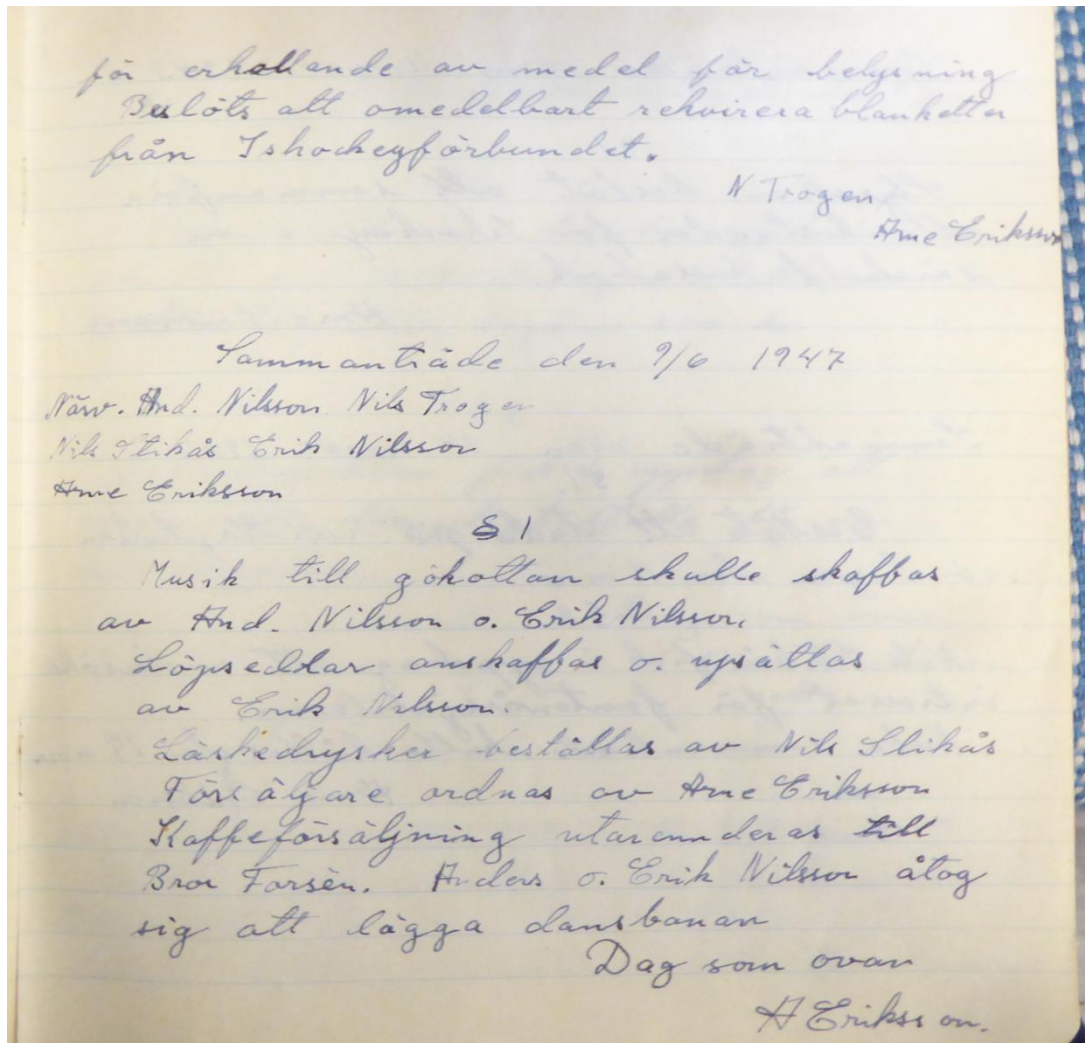 för erhållande av medel för belysning
Beslöts att omedelbart rekvirera blanketter
från Ishockeyförbundet.
N Trogen
Arne Eriksson
Sammanträde den 9/6 1947
Närv. And. Nilsson Nils Trogen
Nils Stikås Erik Nilsson
Arne Eriksson
§ 1
Musik till gökottan skulle skaffas
av And. Nilsson o. Erik Nilsson.
Löpsedlar anskaffas o. upsättas
av Erik Nilsson.
Läskedrysker beställas av Nils Slikås
Försäljare ordnas av Arne Eriksson
Kaffeförsäljning utarennderas till
Bror Forsèn. Anders o. Erik Nilsson åtog
sig att lägga dansbanan
Dag som ovan
A Eriksson.